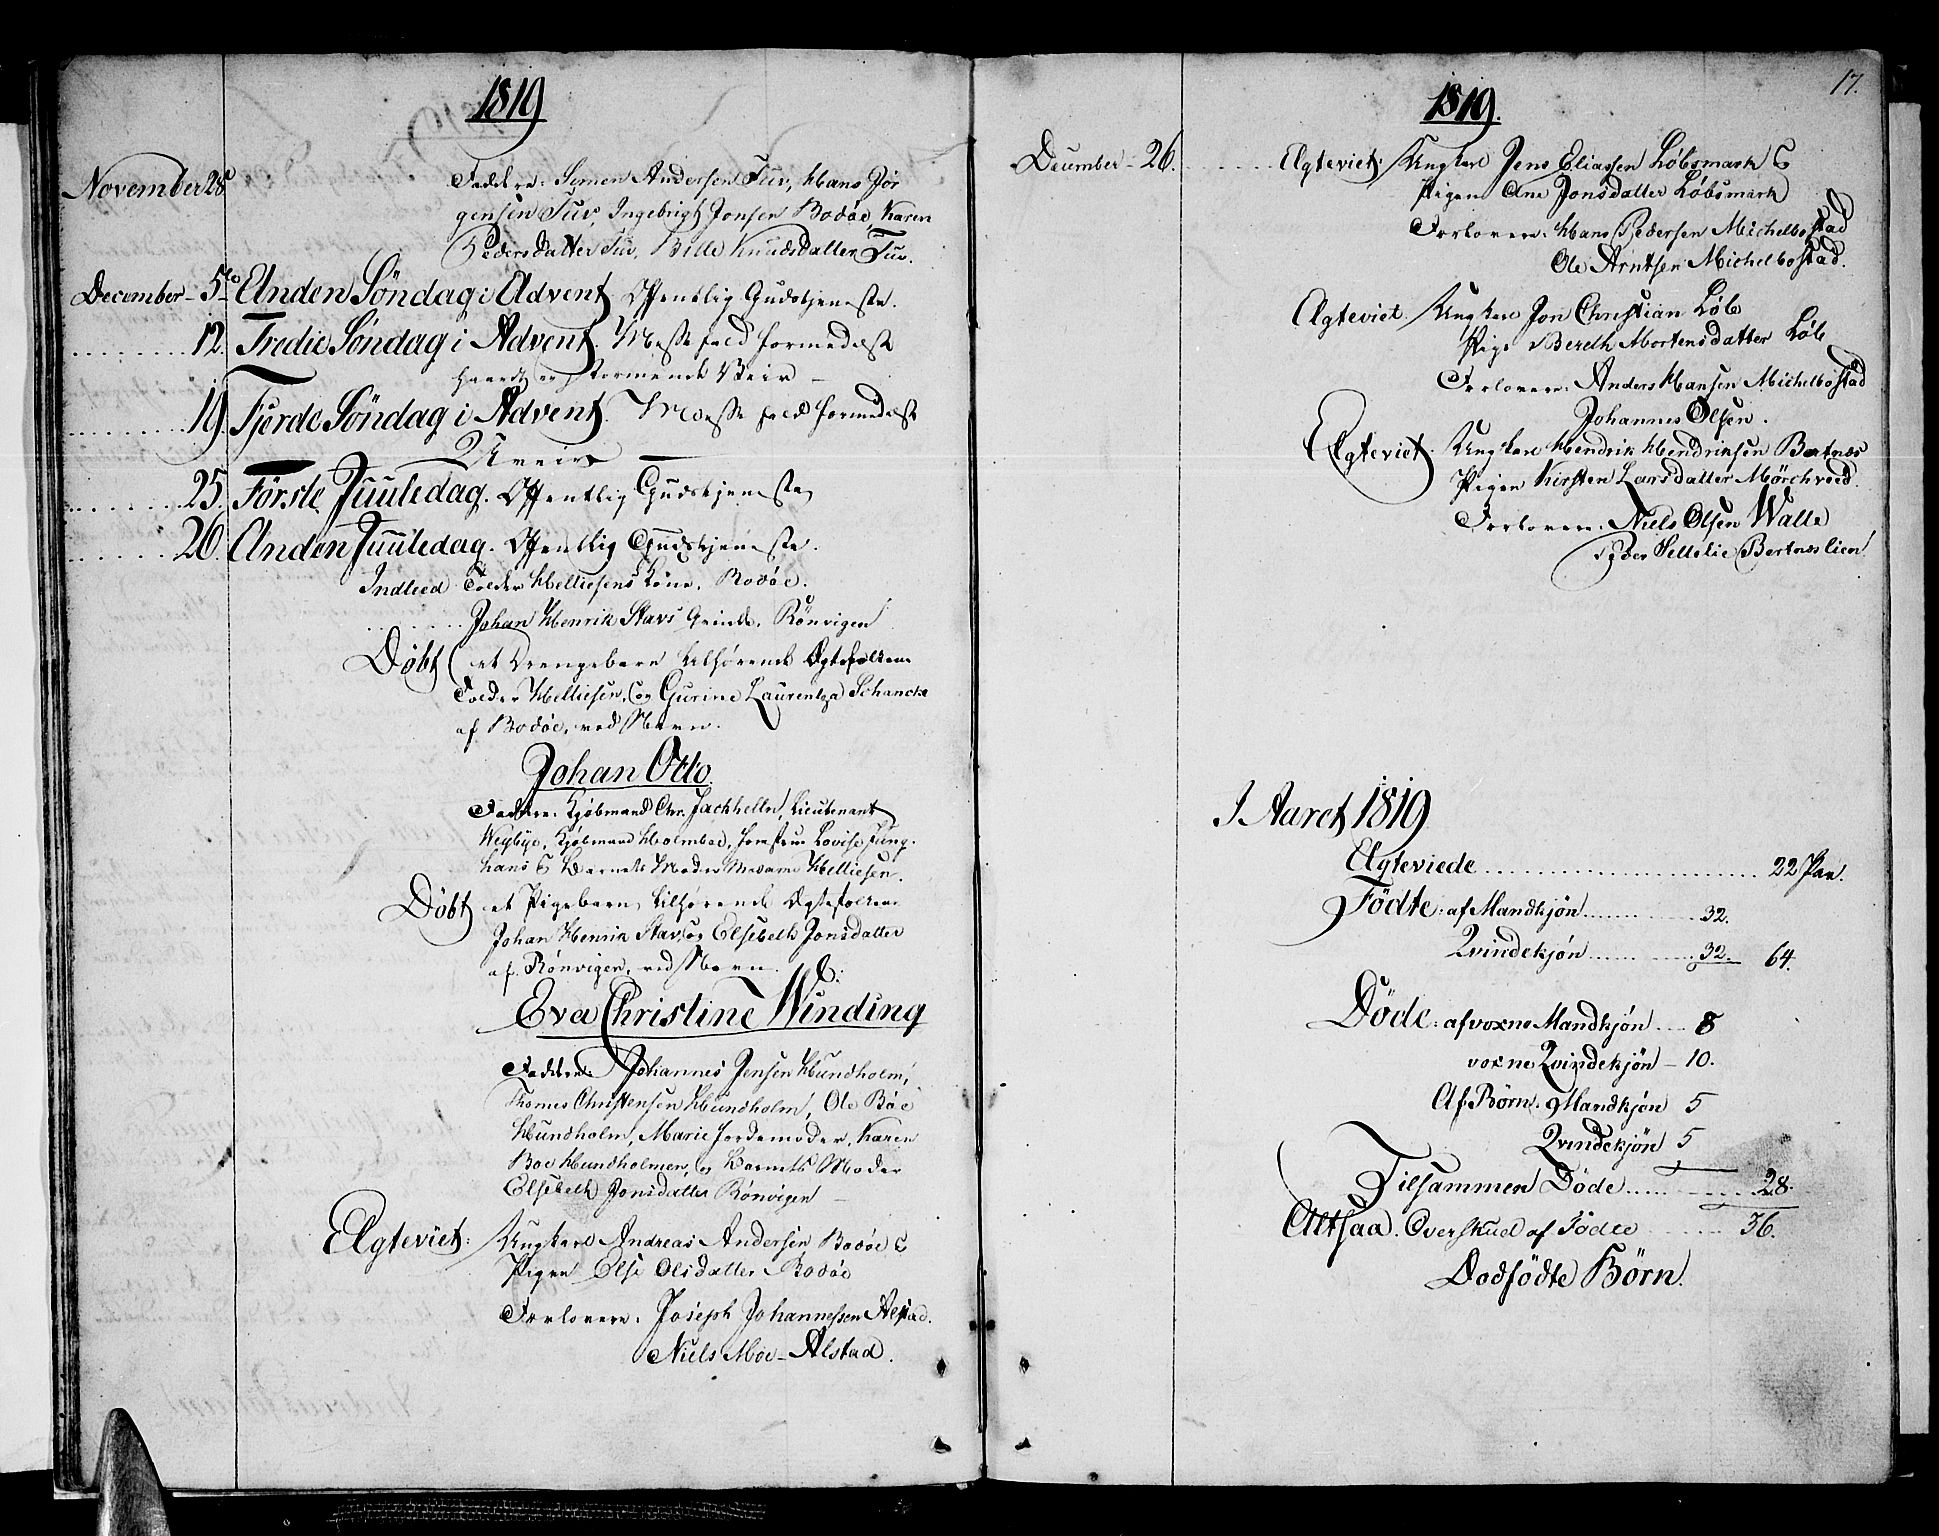 1819
November 28
Faddere: Symen Andersen Tuv, Hans Jør
gensen Tuv, Ingebrigh Jonsen Bodøe, Karen
Pedersdatter Tuv, Bille Knudsdatter Tuv.
December - 5te Anden Søndag i Advent. Offentlig Gudstjeneste.
12. Tredie Søndag i Advent. Messefald formedelst
haardt og stormende Veir -
19. Fjerde Søndag i Advent. Messefald formedelst
Uveir
25. Første Juuledag. Offentlig Gudstjeneste
26. Anden Juuledag. Offentlig Gudstjeneste.
Indleed Tolder Helliesens Kone, Bodøe.
Johan Henrik Stavs Qvinde, Rønvigen
Døbt et Drengebarn tilhørende Ægtefolkene
Tolder Helliesen, og Gurine Laurentza Schancke
af Bodøe, ved Navn.
Johan Otto.
Faddere: Kjøbmand Chr. Jackhelln, Lieutenant
Weybye, Kjøbmand Holmboe, Jomfrue Lovise Jung-
hans & Barnets Moder Madame Helliesen.
Døbt et Pigebarn, tilhørende Ægtefolkene
Johan Henrik Stav, og Elsebeth Jonsdatter
af Rønvigen, ved Navn.
Eva Christine Winding
Faddere: Johannes Jensen Hundholm,
Thomes Christensen Hundholm, Ole Bøe
Hundholm, Marie Jordemoder, Karen
Boe Hundholmen, og Barnets Moder
Elsebeth Jonsdatter Rønvigen -
Ægteviet: Ungkarl Andreas Andersen Bodøe &
Pigen Else Olsdatter Bodøe
Forlovere. Joseph Johannessen Alstad.
Niels Moe - Alstad.
1819.
17.
December - 26.
Ægteviet: Ungkarl Jens Eliassen Løbsmark &
Pigen Ane Jonsdatter Løbsmark
Forlovere. Hans Pedersen Michelbostad
Ole Arntsen Michelbostad.
Ægteviet. Ungkarl Jon Christian Løb
Pige Bereth Mortensdatter Løb
Forlovere. Anders Hansen Michelbostad
Johannes Olsen.
Ægteviet. Ungkarl Hendrik Hendriksen Bertnæs
Pigen Kirsten Larsdatter Mørchveed.
Forlovere. Niels Olsen Walle
Bertneslien
I Aaret 1819
Ægteviede 22 Par.
Födte: af Mandkjøn 32.
Qvindekjøn 32. 64.
Döde: af voxne Mandkjøn 8
voxne Qvindekjön - 10.
Af Børn. Mandkjøn 5
Qvindekjøn 5
Tilsammen Døde 28.
Altsaa. Overskud af Fødte 36.
Dødfödte Børn.